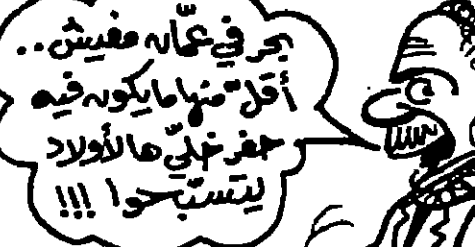 بحر في عمّان مفيش..
أقلّ منها ما يكون فيه
حفر خليّ هالأولاد
يتسبّحوا !!!